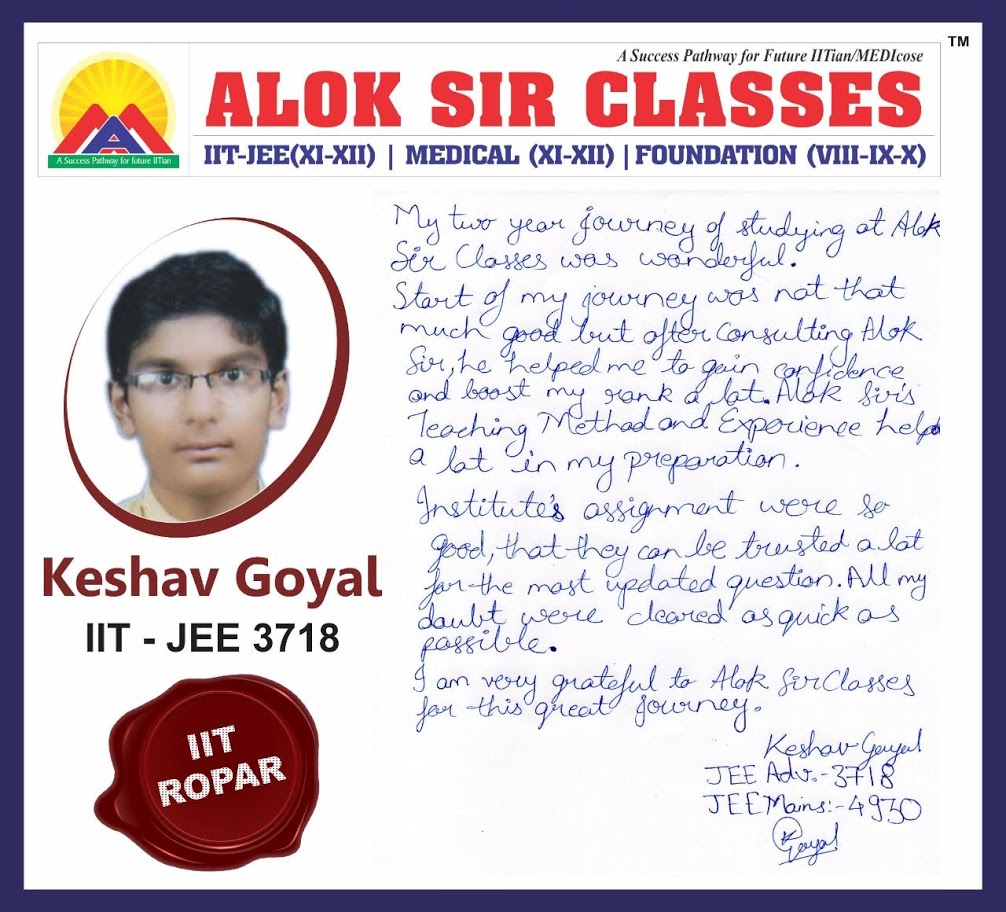 TM
A Success Pathway for Future IITian/MEDIcose
ALOK SIR CLASSES
A Success Pathway for future IITian
IIT-JEE(XI-XII) | MEDICAL (XI-XII) | FOUNDATION (VIII-IX-X)
My two year journey of studying at Alok
Sir Classes was wonderful.
Start of my journey was not that
much good but after consulting Alok
Sir, he helped me to gain confidence
and boost my rank a lot. Alok Sir's
Teaching Method and Experience helped
a lot in my preparation.
Institute's assignment were so
good, that they can be trusted a lot
for the most updated question. All my
doubt were cleared as quick as
possible.
I am very grateful to Alok Sir Classes
for this great journey.
Keshav Goyal
JEE Adv.-3718
JEE Mains:-4930
Goyal
Keshav Goyal
IIT - JEE 3718
IIT
ROPAR